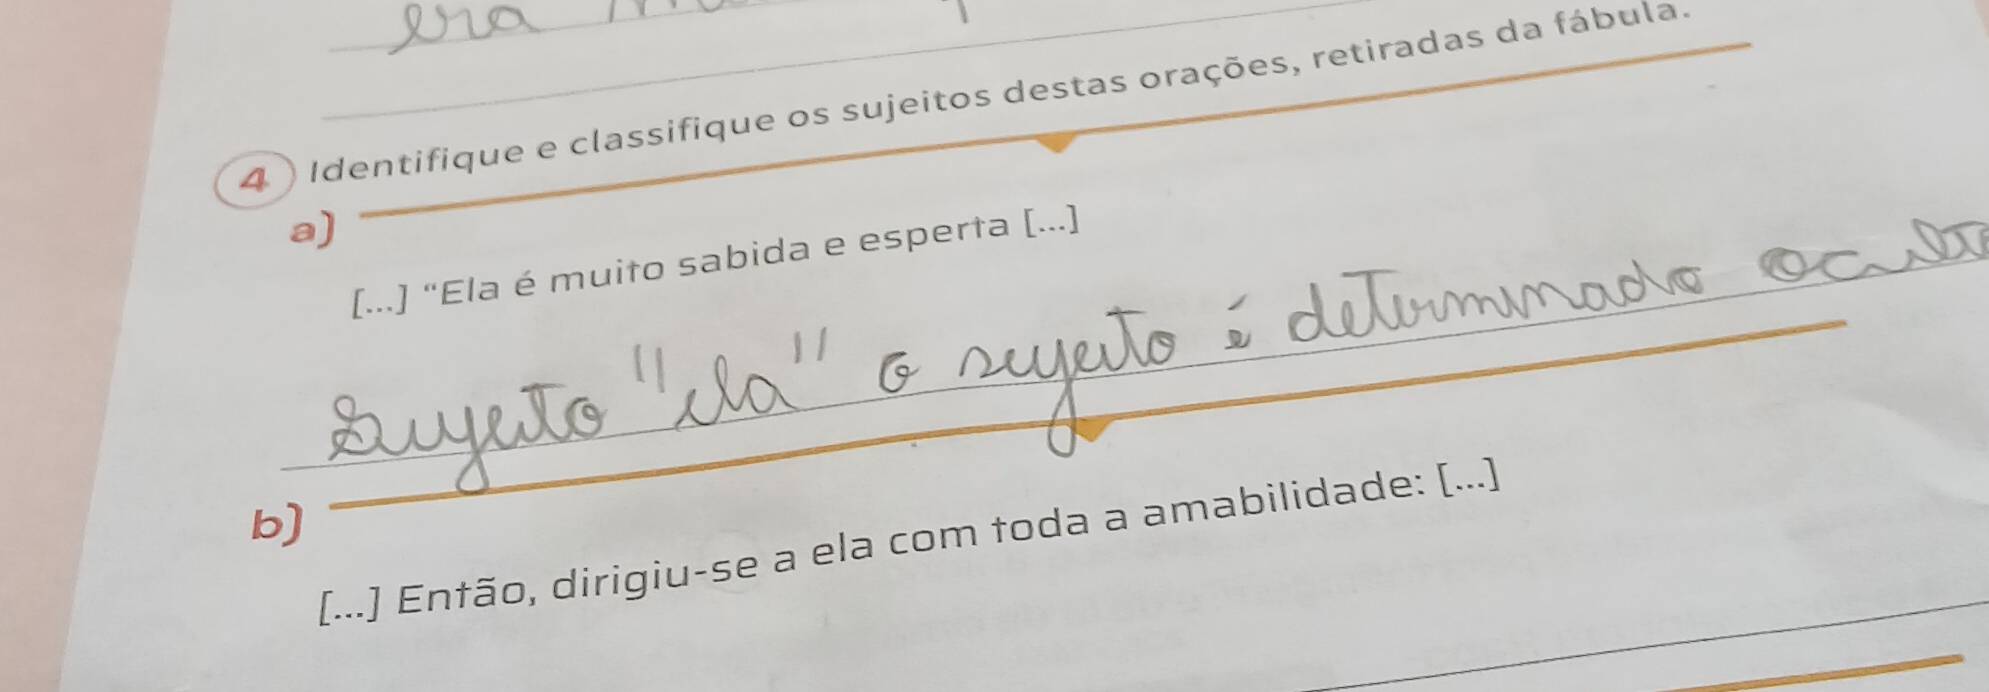 era
4 Identifique e classifique os sujeitos destas orações, retiradas da fábula.
a)
[...] “Ela é muito sabida e esperta [...]
Sujeito "ela" o sujeito é determinado oculto
b)
[...] Então, dirigiu-se a ela com toda a amabilidade: [...]